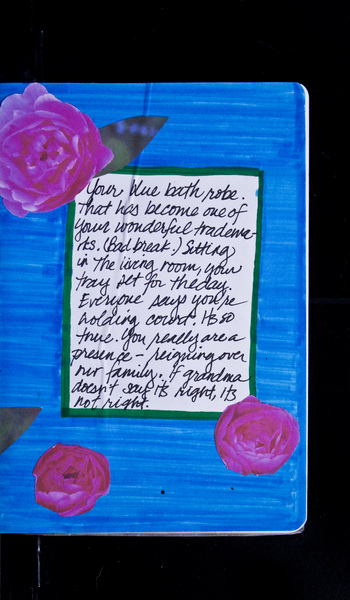 Your blue bath robe.
that has become one of
your wonderful tradema-
rks. (Bad break.) Sitting
in the living room, your
tray set for the day.
Everyone says you're
holding court. It's so
true. You really are a
presence - reigning over
our family. If grandma
doesn't say its right, its
not right.